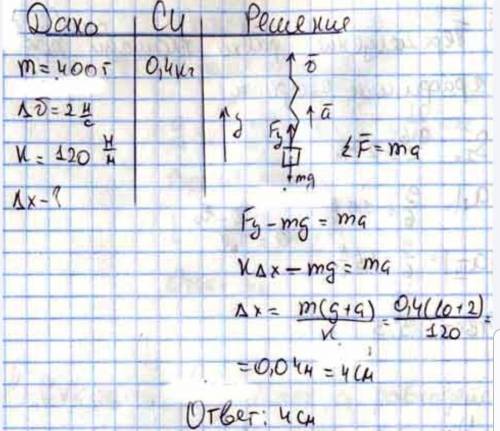 Дано СИ Решение
m = 400г 0,4кг
Δʋ = 2 м/с
к = 120 н/м
Δx - ?
ʋ̄
ā
y
Fy
mg
ΣF̄ = ma
Fy - mg = ma
кΔx - mg = ma
Δx = m(g+a)/к = 0,4(10+2)/120 =
= 0,04м = 4см
Ответ: 4см